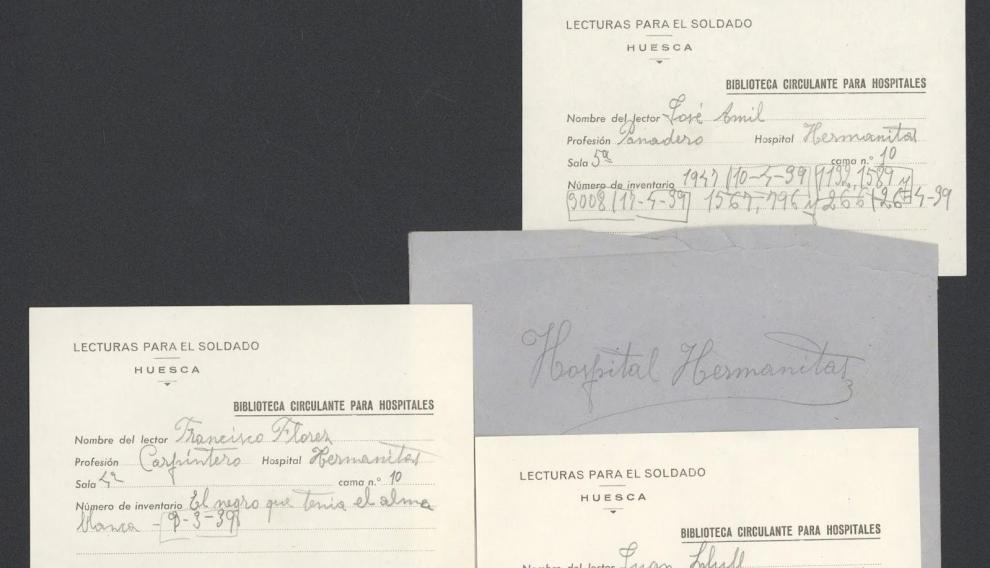 LECTURAS PARA EL SOLDADO
HUESCA
BIBLIOTECA CIRCULANTE PARA HOSPITALES
Nombre del lector José Amil
Profesión Panadero Hospital Hermanitas
Sala 5ª cama n.° 10
Número de inventario 1947 10-4-39 1132, 1589 y
3008 17-4-39 1567, 796 y 266 26-4-39
Hospital Hermanitas
LECTURAS PARA EL SOLDADO
HUESCA
BIBLIOTECA CIRCULANTE PARA HOSPITALES
Nombre del lector Francisco Florez
Profesión Carpintero Hospital Hermanitas
Sala 4ª cama n.° 10
Número de inventario El negro que tenia el alma
blanca - 9-3-39
LECTURAS PARA EL SOLDADO
HUESCA
BIBLIOTECA CIRCULANTE PARA HOSPITALES
Nombre del lector Juan